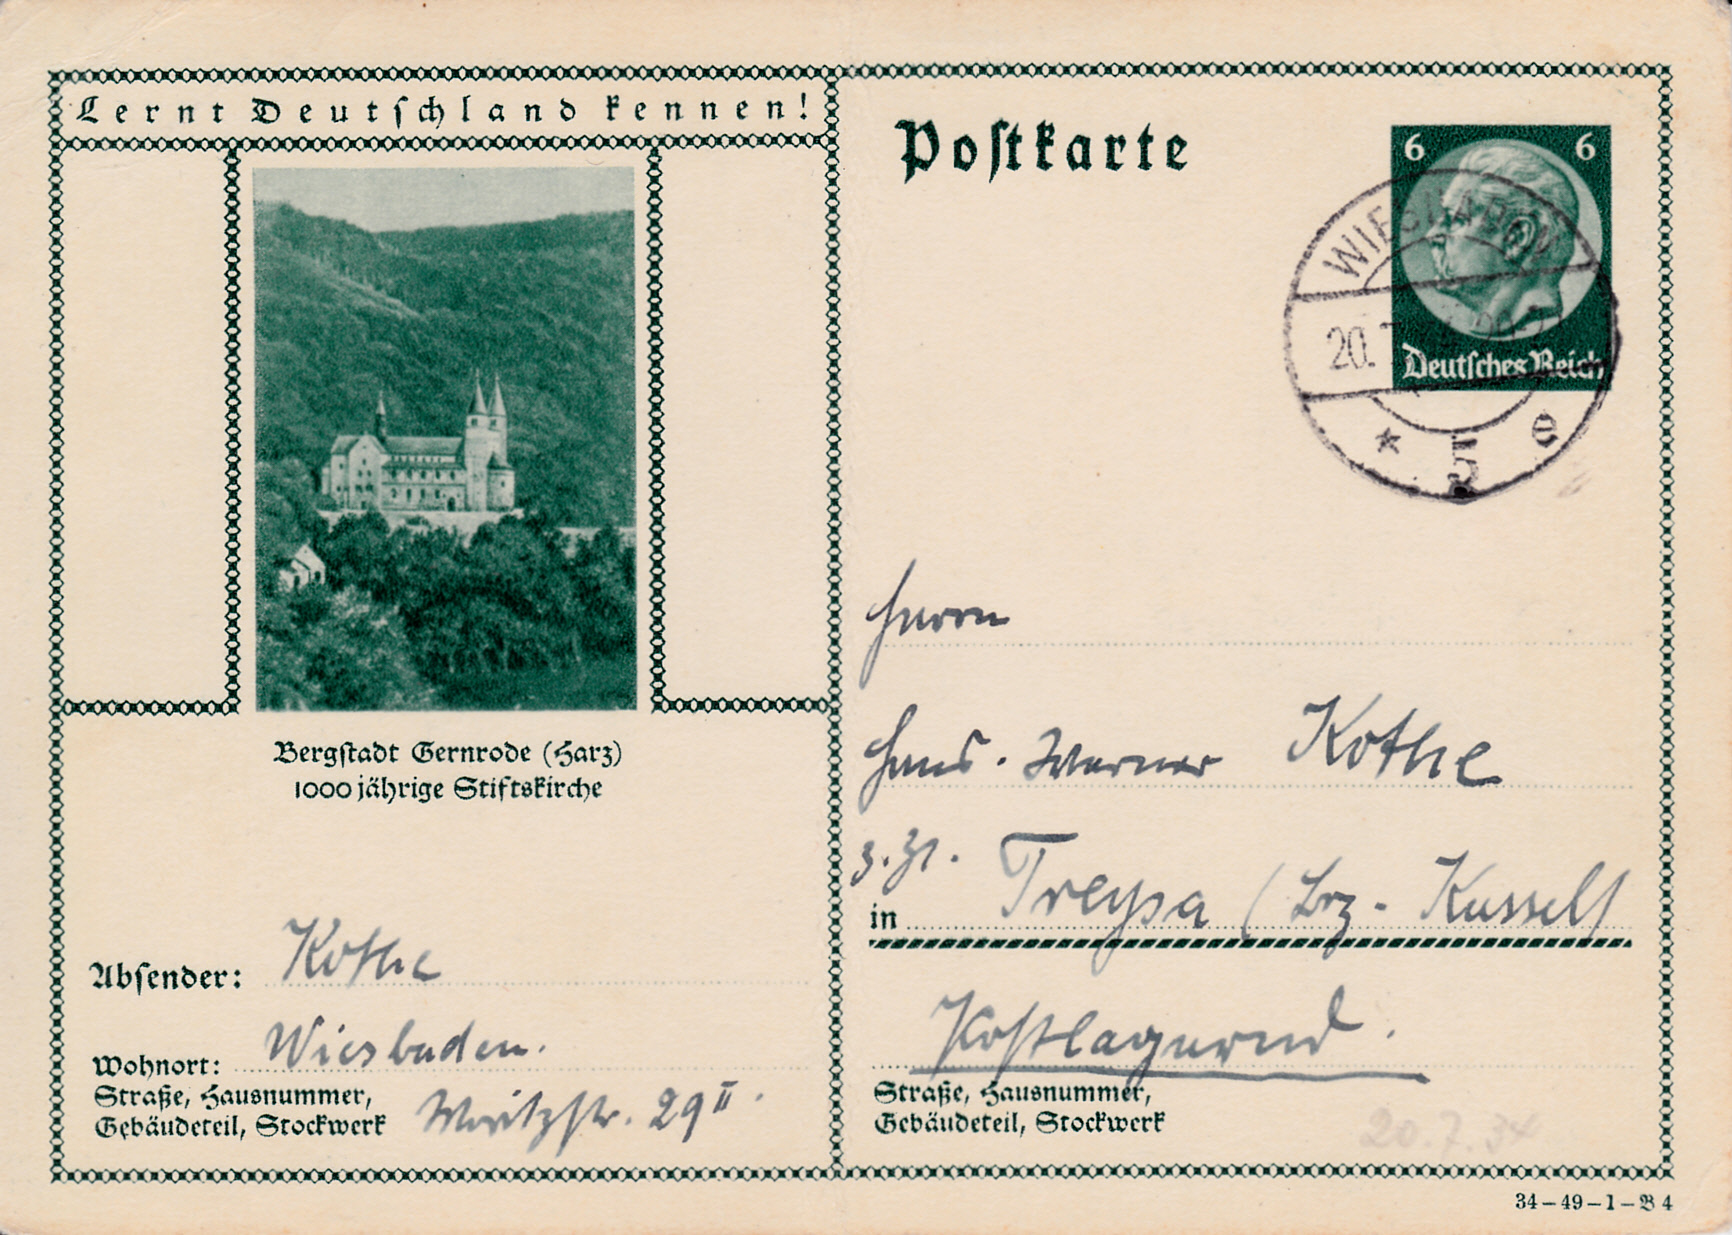 Lernt Deutschland kennen!
Bergstadt Gernrode (Harz)
1000 jährige Stiftskirche
Absender: Kothe
Wohnort: Wiesbaden.
Straße, Hausnummer,
Gebäudeteil, Stockwerk Moritzstr. 29 II.
Postkarte
6 6
Deutsches Reich
WIESBADEN
20.
* 5 e
Herrn
Hans-Werner Kothe
z. Zt.
in Treysa (Bez. Kassel)
Postlagernd.
Straße, Hausnummer,
Gebäudeteil, Stockwerk
20.7.34
34-49-1-B 4